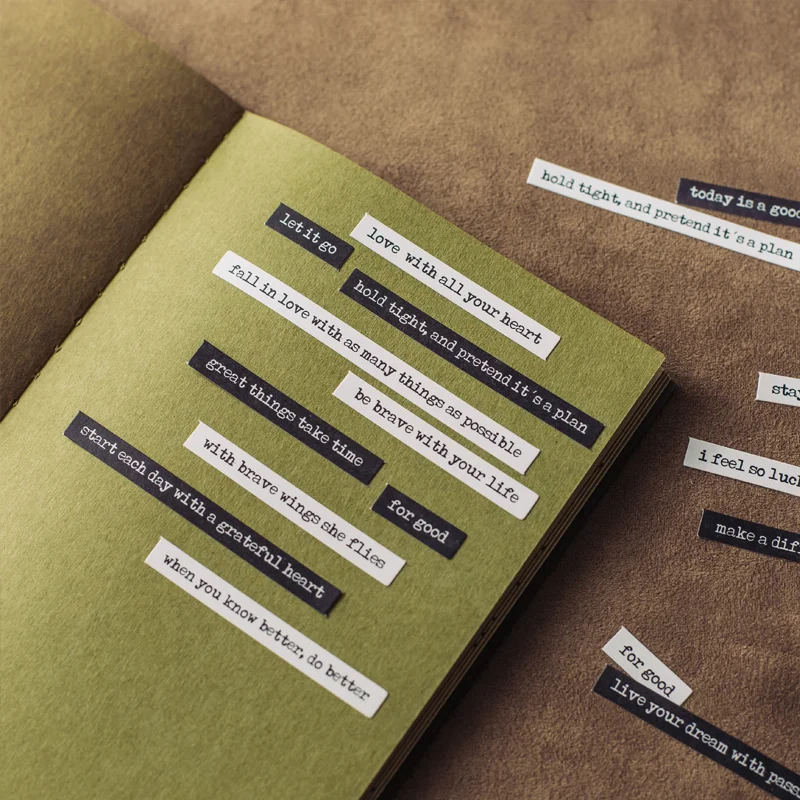 let it go
love with all your heart
hold tight, and pretend it's a plan
fall in love with as many things as possible
great things take time
be brave with your life
with brave wings she flies
for good
start each day with a grateful heart
when you know better, do better
today is a good
hold tight, and pretend it's a plan
stay
i feel so luck
make a dif
for good
live your dream with pass